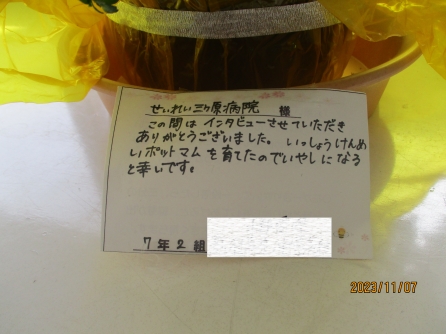 せいれい三ヶ原病院 様
この間は インタビューさせていただき
ありがとうございました。 いっしょうけんめ
いポットマムを育てたのでいやしになる
と幸いです。
7年2組
2023/11/07